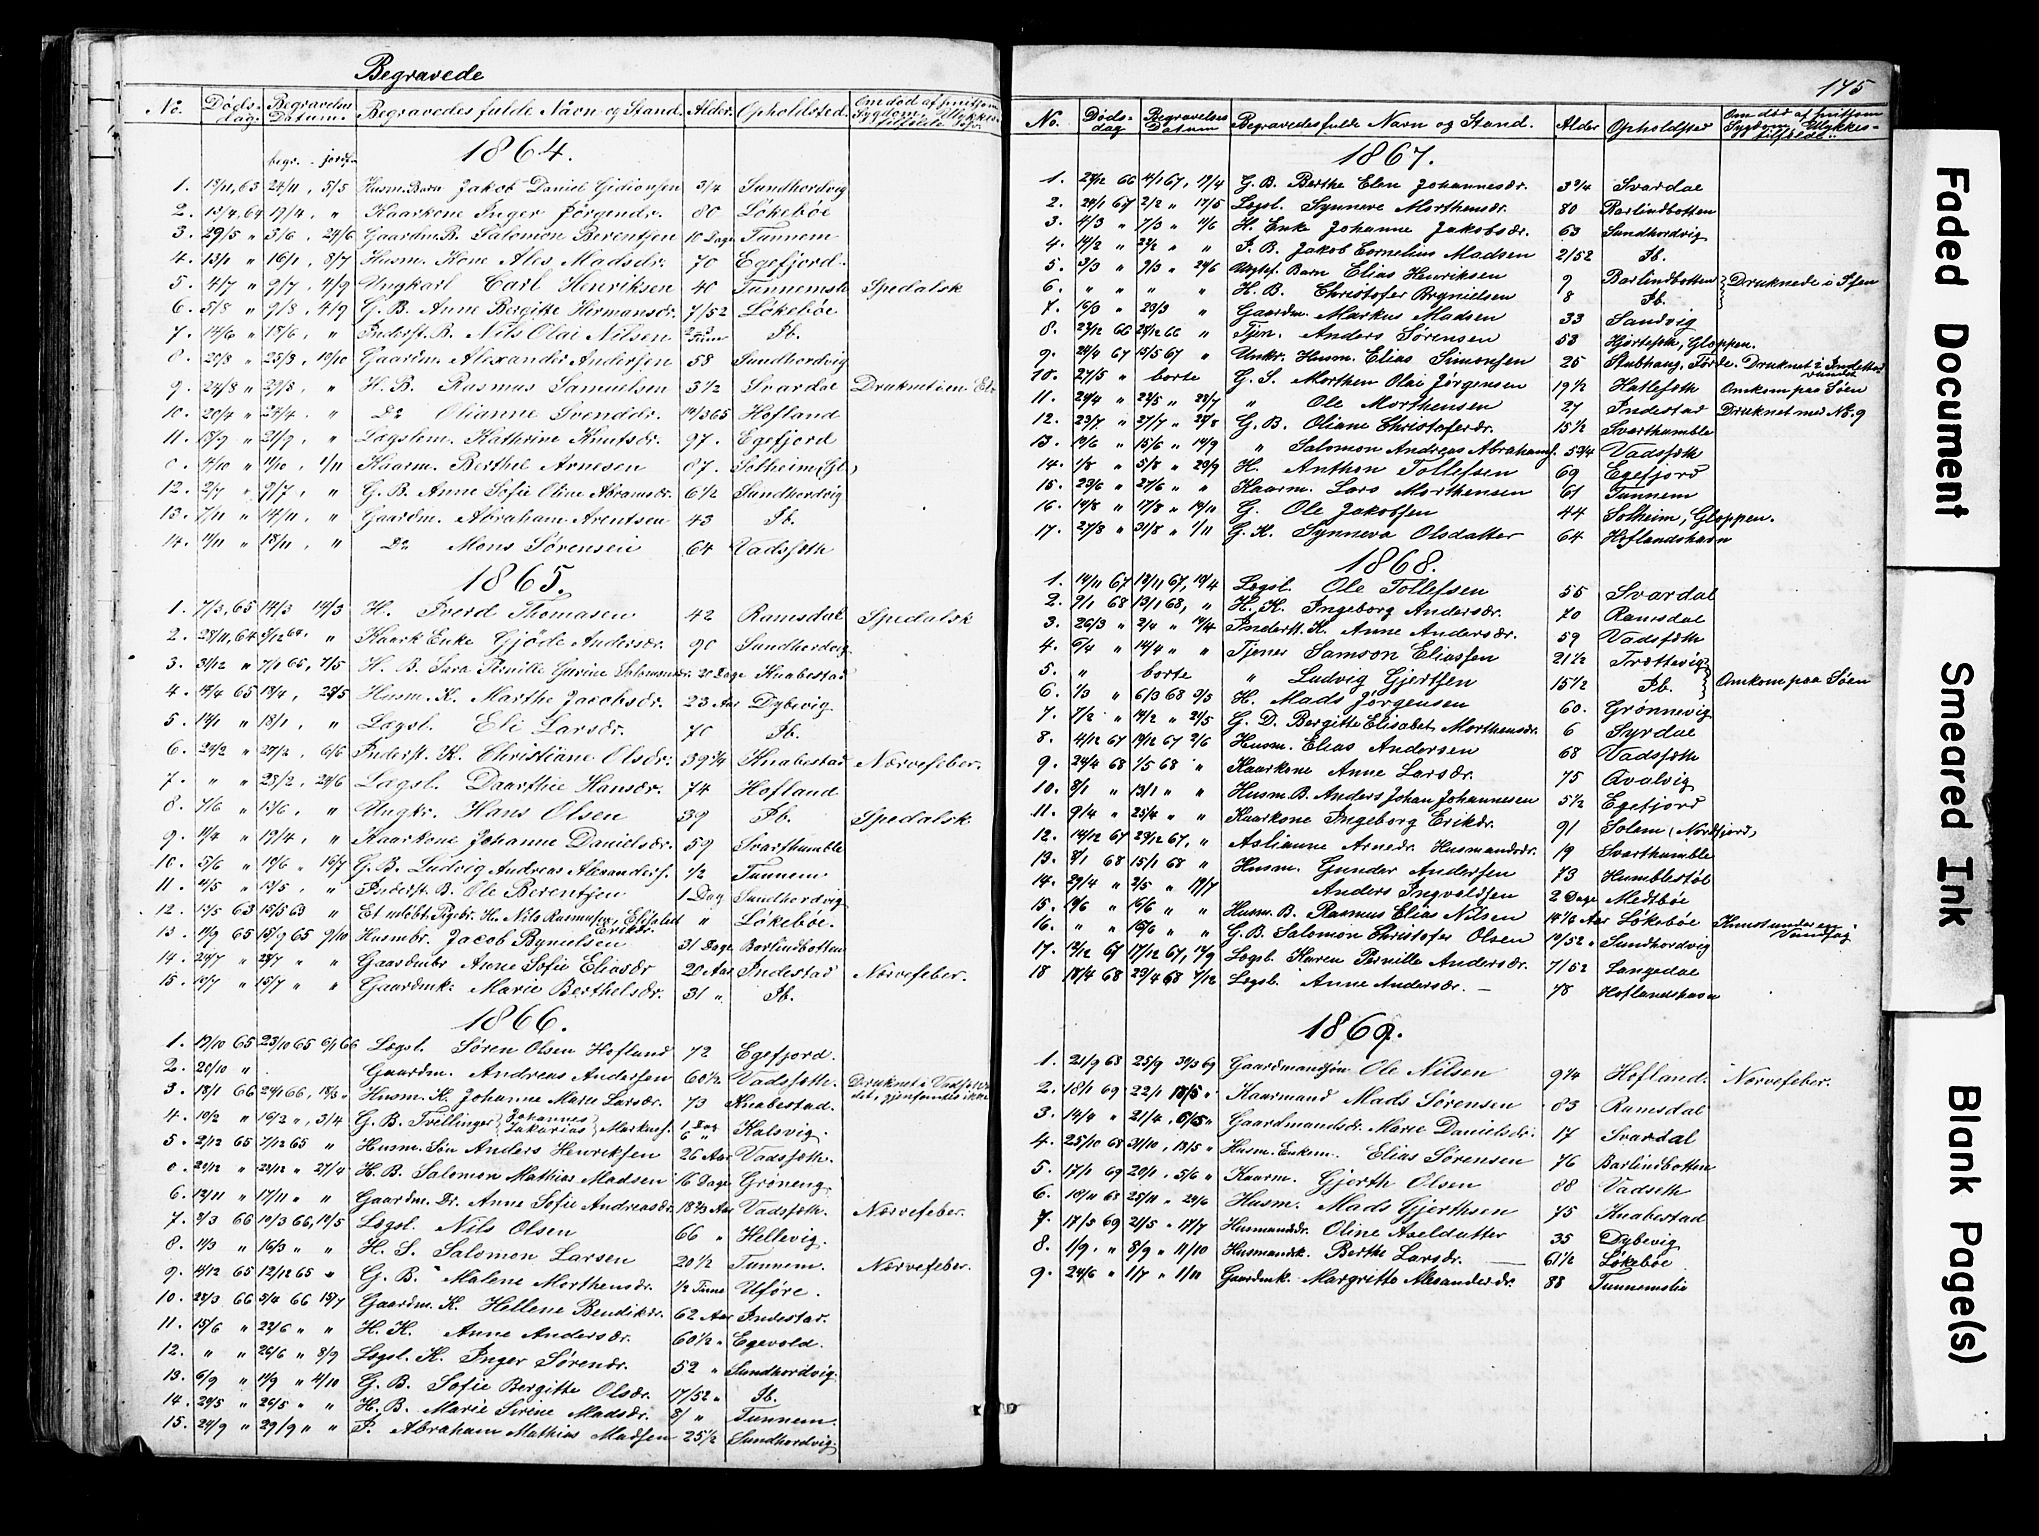 Begravede
No. Døds-dag. Begravelses Datum. Begravedes fulde Navn og Stand. Alder. Opholdsted. Om død af smitsom Sygdom, Ulykkes-tilfælde
begr. jordf.
1864.
1. 24/11, 5/5 Husm. Barn Jakob Daniel Gidionsen 3/4 Sundhordvig
2. 13/4, 64 17/4, " Kaarkone Inger Jörgendr. 80 Lökeböe
3. 29/5 " 3/6, 24/6 Gaardm. B. Salomon Berentsen 10 Dage Tunnem
4. 13/1 " 16/1, 8/7 Husm. Kone Ales Madsdr. 70 Egefjord.
5. 4/7 " 9/7, 4/9 Ungkarl Carl Henriksen 40 Tunnemsli Spedalsk
6. 5/8 " 9/8, 4/9 G. B. Anne Bergitte Hermansdr. 7/52 Lökeböe
7. 14/6 " 18/6, " Inderst. B. Nils Olai Nilsen Ib.
8. 20/8 " 19/10 Gaardm. Alexander Andersen 58 Sundhordvig
9. 24/8 " 29/8, " H. B. Rasmus Samuelsen 3 1/2 Svardal Druknet i en
10. 20/4 " 24/4, " Do Olianne Svendsdr. Hofland
11. 18/9 " 21/9, " Lægslem. Kathrine Knutsdr. 97. Egefjord
0. 4/10 " 1/11 Kaarm. Berthel Arnesen 87. Solheim (Gl.)
12. 2/7 " 9/7, " G. B. Anne Sofie Oline Abramsdr. 6 1/2 Sundhordvig
13. 7/11 " 14/11, " Gaardm. Abraham Arentsen 43 Ib.
14. 11/11 " 18/11, " Do Mons Sörensen 64 Vadsæth
1865.
1. 7/3, 65 14/3 H. Iverd Thomasen 42 Ramsdal Spedalsk
2. 28/11, 64 " Kaark Enke Gjöde Andersdr. 90 Sundhordvig
3. 31/12 " 7/1 65, 7/5 H. B. Sara Pernille Gurine Salomonsdr. 20 Dage Knabestad
4. 65 Husm. K. Marthe Jacobsdr. 23 Aar Dybevig
5. 14/1 " 18/1, " Lægsl. Eli Larsdr. 70 Ib.
6. 24/2 " 27/2, 6/6 Inderst. K. Christiane Olsdr. 39 3/4 Knabestad Nervefeber.
7. " " 28/2, 24/6 Lægsl. Daarthie Hansdr. 74 Hofland
8. 7/6 " 13/6, " Ungkr. Hans Olsen 39 Ib. Spedalsk
9. 11/4 " 19/4, " Kaarkone Johanne Danielsdr. 59 Svarthumble
10. 5/6 " 19/6 " 16/7 G. B. Ludvig Andreas Alexanders. 1/2 Tunnem
11. 11/5 " 13/5, " Inderst. B. Ole Berentsen 1 Dag Sundhordvig
12. 63 15/5 63 " Et udöbt Pigebr. H. Nils Rasmusen, " Lökeböe.
13. 65 65 9/10 Husmbr. Jacob Bynielsen Eriksdr. 31 Dage Barlindbotten
14. 24/7 " 28/7 " " Gaardmbr Anne Sofie Eliasdr 20 Aar Indestad Nervefeber.
15. 10/7 " 15/7 " " Gaardmk. Marie Berthelsdr. 31 " Ib.
1866.
1. 19/10 65 23/10 65 6/1 66 Lægsl. Sören Olsen Hofland 72 Egefjord.
2. 20/10 " Gaardm. Andreas Andersen 60 1/2 Vadsæth. Druknet i
3. 18/1 66 24/1 66, Husm. K. Johanne Marie Larsdr. 73 Knabestad. gjenfandtes ikke
4. 10/2 " 16/2 ", 3/4 G. B. Tvillinger { Johannes Zakarias } Markuss. 1 Dag 6 " Kalsvig.
5. 2/12 65 7/12 65 " Husm. Sön Anders Henriksen 26 Aar Vadsæth.
0. " 27/4 H. B. Salomon Mathias Madsen 16 Dage Gröneng
6. 12/11 " 17/11 " " Gaardm. Dr. Anne Sofie Andreasdr. 18 2/3 Aar Vadsæth. Nervefeber.
7. 66 66, Legsl. Nils Olsen 66 " Hellevig.
8. 11/3 " 16/3 " " H. S. Salomon Larsen 20 1/2 Tunnem. Nervefeber.
9. 4/12 65 12/12 65 " G. B. Malene Morthensdr. 1/2 Time Uföre.
10. 66 66 15/7 Gaardm. K. Hellene Bendiksdr. 62 Aar Indestad.
11. 15/6 " 22/6 " " H. K. Anne Andersdr. 60 1/2 " Egevold.
12. " " 26/6 " 8/9 Lægsl. K. Inger Sörendr. 52 " Sundhordvig.
13. 6/9 " 11/9 " 4/10 G. B. Sofie Bergitte Olsdr. 17/52 " Ib.
14. 20/5 " 26/5 " " H. B. Marie Sirine Madsdr. Tunnem.
15. 24/9 " 29/9 " " P. Abraham Mathias Madsen 25 1/2 Sundhordvig
175
No. Døds-dag Begravelses Datum Begravedes fulde Navn og Stand. Alder Opholdsted Om död af smitsom Sygdom, Ulykkes-tilfælde
1867.
1. 66 4/1 67, G. B. Berthe Elen Johannesdr. 3 3/4 Svardal
2. 24/1 67 2/2 " 17/5 Legsl. Synneve Morthensdr. 80 Barlindbotten
3. 4/3 " 7/3 " H. Enke Johanne Jakobsdr. 63 Sundhordvig
4. 14/2 " 22/2 " " I. B. Jakob Cornelius Madsen 2/52 Ib.
5. 3/3 " 9/3 " 24/6 Barn Elias Henriksen 9 Barlindbotten } Druknede i Isen
6. " " " " H. B. Christofer Brynielsen 8 Ib.
7. 16/3 23/3 " Gaardm. Markus Madsen 33 Sandvig
8. 66 66 " Tjen. Anders Sörensen 53 Hjorteseth, Gloppen.
9. 67 67 " Unkr. Husm. Elias Simonsen 25 Stubhaug, Förde. Druknet i
10. 27/5 " borte G. S. Morthen Olai Jörgensen 19 1/2 Hatleseth Omkom paa Söen
11. 24/4 " 23/7 " Ole Morthensen 27 Indestad Druknet med No. 9
12. 23/7 " 27/7 " G. B. Oliane Christoferdr. 15 1/2 Svarthumble
13. 10/6 " 15/6 " 14/9 " Salomon Andreas Abrahams. 5 3/4 Vadsæth
14. 1/8 " 5/8 " 29/9 H. Anthon Tollefsen 69 Egefjord
15. 23/6 " 27/6 " " Kaarm. Lars Morthensen 61 Tunnem
16. 14/8 " 17/8 " G. Ole Jakobsen 44 Solheim, Gloppen.
17. 27/8 " 31/8 " 1/11 G. K. Synneva Olsdatter 64 Hoflandshavn
1868.
1. 14/11 67 67, Legsl. Ole Tollefsen 55 Svardal
2. 9/1 68 13/1 68, " H. K. Ingeborg Andersdr. 70 Ramsdal
3. 26/3 " 2/4 " Inderst. K. Anne Andersdr. 59 Vadsæth
4. 6/4 " 14/4 " " Tjener Samson Eliassen 21 1/2 Trættevig } Omkom paa Söen
5. " borte " Ludvig Gjertsen 15 1/2 Ib.
6. 1/3 " 6/3 68 9/5 H. Mads Jörgensen 60. Grönnevig
7. 7/2 " 14/2 " G. D. Bergitte Elisabet Morthensdr. 6 Syrdal
8. 4/12 67 67 2/6 Husm. Elias Andersen 68 Vadsæth
9. 24/4 68 1/5 68 " Kaarkone Anne Larsdr. 75 Qvalvig
10. 8/1 " 13/1 " " Husm. B. Anders Johan Johannesen 5 1/2 Egefjord
11. 9/4 " 25/4 " " Kaarkone Ingeborg Eriksdr. 91 Solem (Nordfjord)
12. 67 67, " Aslianne Arnedr. Husmandsdr. 19 Svarthumble
13. 8/1 68 15/1 68 " Husm. Gunder Andersen 73 Humblestöl
14. 29/4 " 2/5 " Anders Ingvoldsen 2 Dage Medböe
15. 10/6 " 16/6 " " Husm. B. Rasmus Elias Nilsen Aar Lökeböe Knust under en
16. " " " " G. B. Salomon Christofer Olsen " Sundhordvig
17. 67 17/12 67, Lægsl. Karen Pernille Andersdr. 7/52 Langedal
18 68 68 Legsl. Anne Andersdr. 78 Hoflandshavn
1869.
1. 21/9 68 25/9 Gaardmandsön Ole Nilsen 9 1/4 Hofland. Nervefeber.
2. 18/1 69 22/1 18/5 " Kaarmand Mads Sörensen 83 Ramsdal
3. 14/4 " 21/4, 6/5 " Gaardmandsdr. Marie Danielsdr. 17 Svardal
4. 25/10 68 31/10, 13/5 " Husm. Enkem. Elias Sörensen 76 Barlindbotten
5. 17/1 69 20/1, 5/6 " Kaarm. Gjerth Olsen 88 Vadseth
6. 18/11 68 25/11 " Husm. Mads Gjerthsen 75 Knabestad
7. 17/5 69 21/5 " 17/7 Husmandsdr. Oline Axeldatter 35 Dybevig
8. 1/9, " 8/9 " 11/10 Husmandsk. Berthe Larsdr. 61 1/2 Lökeböe
9. 24/6 " 1/7 " 1/11 Gaardmk. Margritte Alexanderdr. 88 Tunnemslia
Faded Document
Smeared Ink
Blank Page(s)